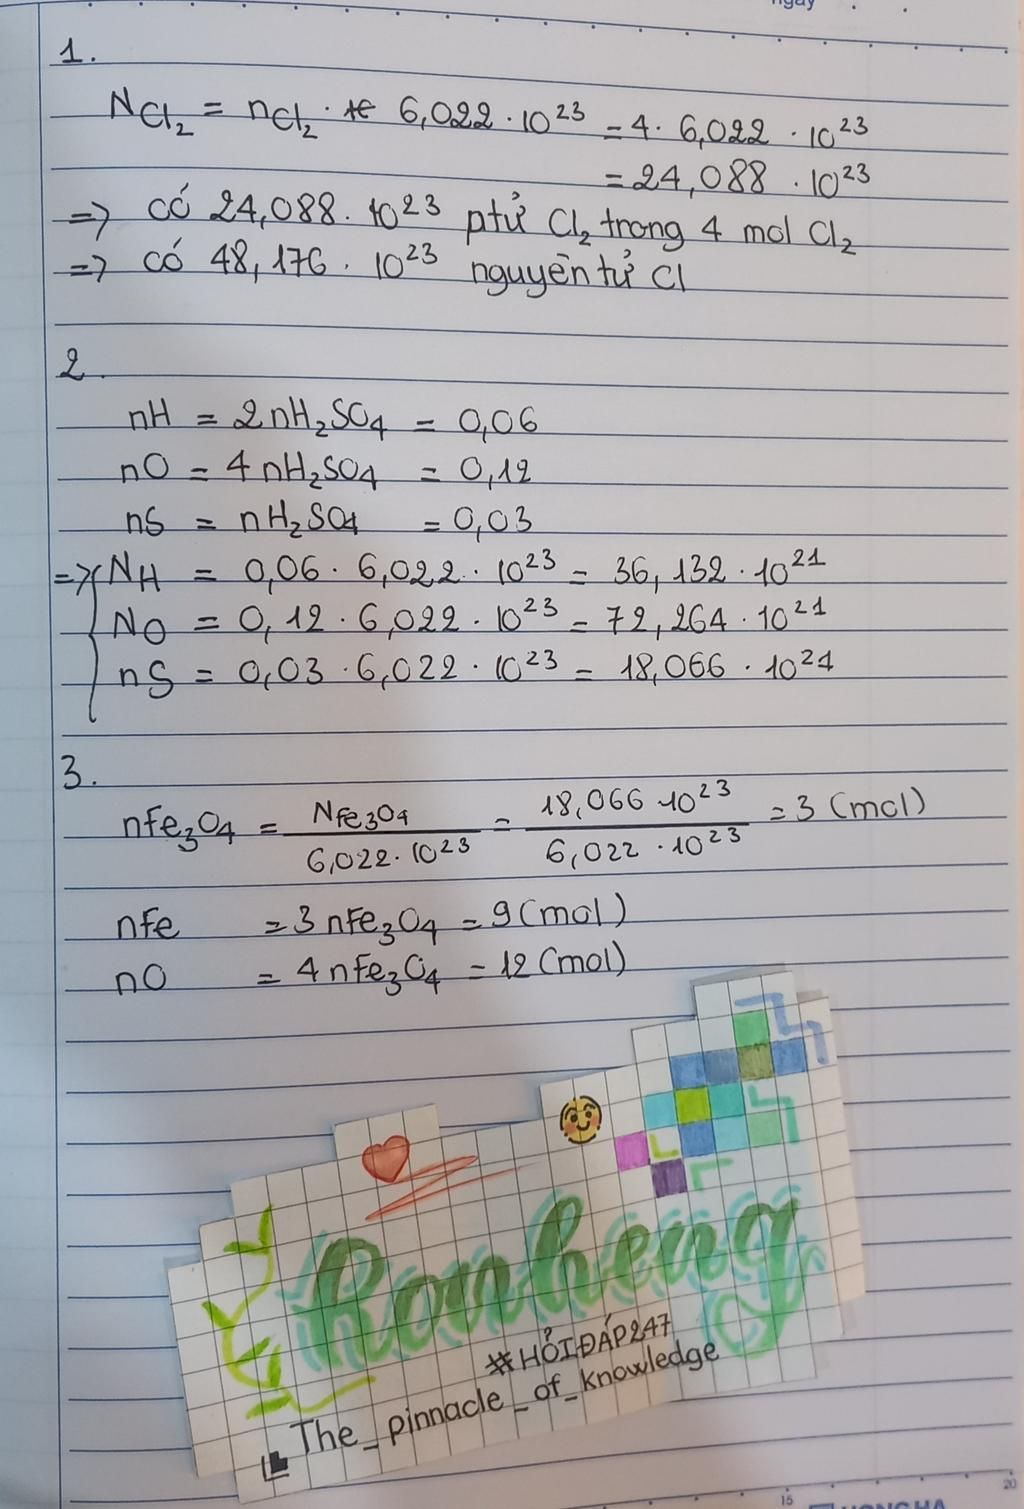 ngày
1.
N_Cl₂ = n_Cl₂ · 6,022 · 10²³ = 4 · 6,022 · 10²³
= 24,088 · 10²³
=> có 24,088 · 10²³ ptử Cl₂ trong 4 mol Cl₂
=> có 48,176 · 10²³ nguyên tử Cl
2.
nH = 2nH₂SO₄ = 0,06
nO = 4nH₂SO₄ = 0,12
nS = nH₂SO₄ = 0,03
=> { N_H = 0,06 · 6,022 · 10²³ = 36,132 · 10²¹
N_O = 0,12 · 6,022 · 10²³ = 72,264 · 10²¹
nS = 0,03 · 6,022 · 10²³ = 18,066 · 10²¹
3.
nFe₃O₄ = N_Fe₃O₄ / 6,022 · 10²³ = 18,066 · 10²³ / 6,022 · 10²³ = 3 (mol)
nFe = 3nFe₃O₄ = 9 (mol)
nO = 4nFe₃O₄ = 12 (mol)
Ronheng
#HỎIĐÁP247
The_pinnacle_of_knowledge
15 20